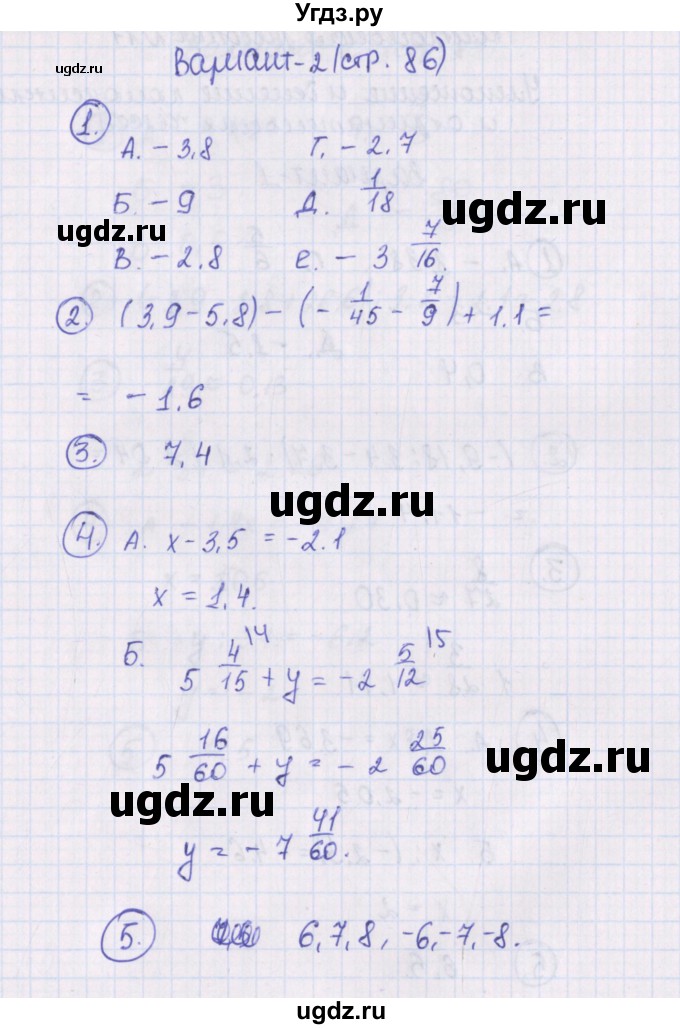 Угдз.ру
Вариант-2 (стр. 86)
ugdz.ru
1. А. - 3,8 Г. - 2.7
Б. - 9 Д. 1/18
ugdz.ru
В. - 2.8 Е. - 3 7/16.
2. (3,9-5,8)-(-1/45-7/9)+1.1=
ugdz.ru
= - 1.6
3. 7,4
ugdz.ru
ugdz.ru
4. А. х-3,5 = -2.1
х = 1,4.
Б. 5 4/15 \4 + у = - 2 5/12 \5
ugdz.ru
ugdz.ru
5 16/60 + у = - 2 25/60
ugdz.ru
ugdz.ru
у = - 7 41/60.
5. 6,7,8, -6,-7,-8.
ugdz.ru
ugdz.ru